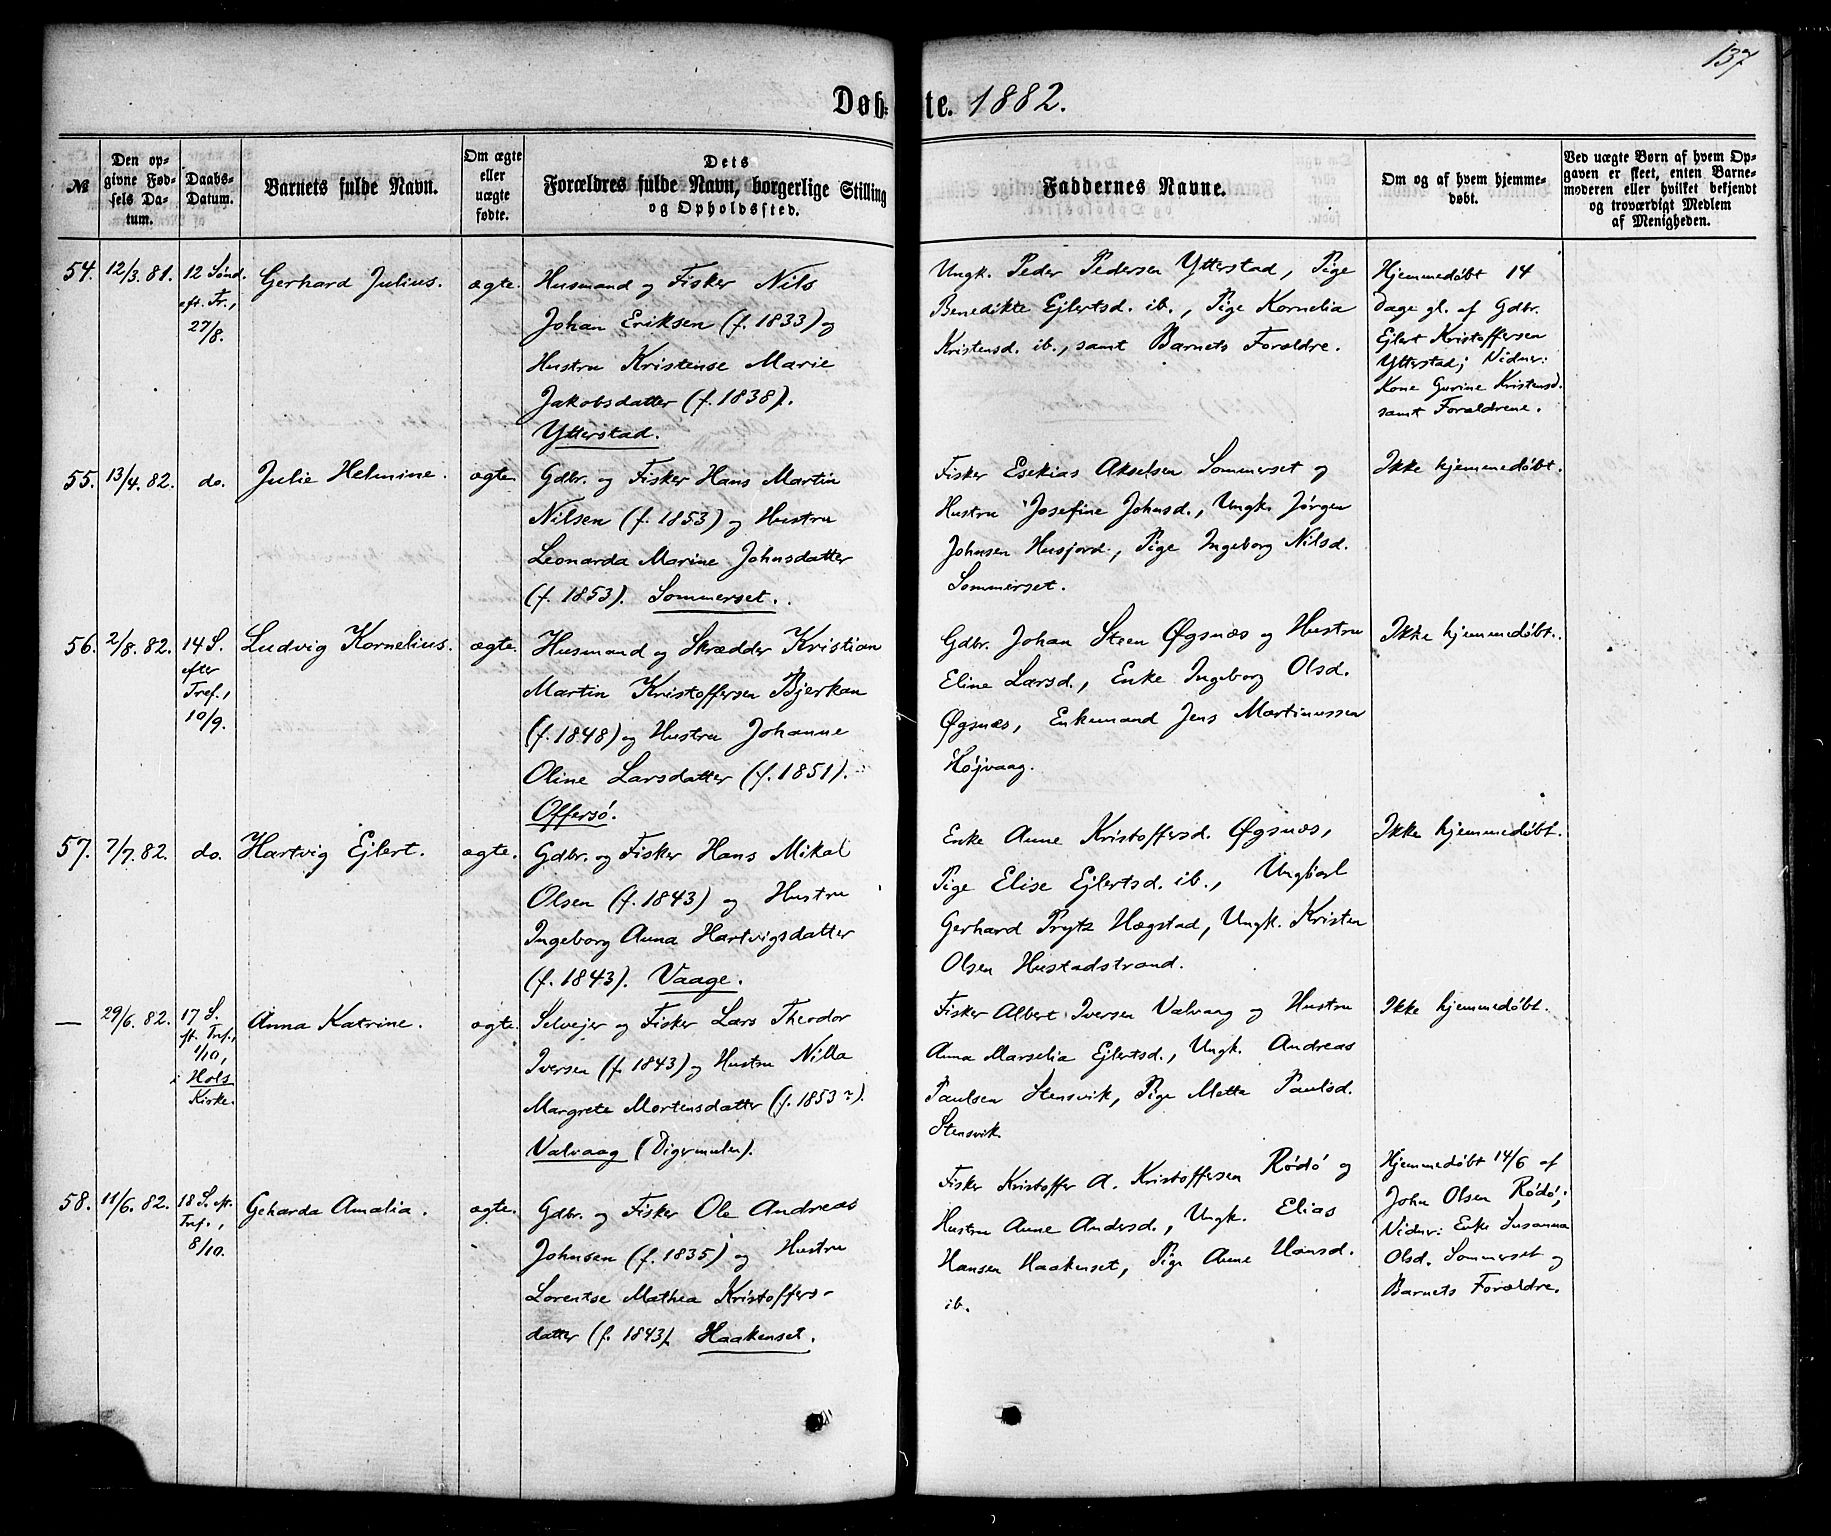 137
Døb-te. 1882.
№
Den op-
givne Fød-
sels Da-
tum.
Daabs-
Datum.
Barnets fulde Navn.
Om ægte
eller
uægte
fødte.
Dets
Forældres fulde Navn, borgerlige Stilling
og Opholdssted.
Faddernes Navne.
Om og af hvem hjemme-
døbt.
Ved uægte Børn af hvem Op-
gaven er skeet, enten Barne-
moderen eller hvilket bekjendt
og troværdigt Medlem
af Menigheden.
54.
12/3. 81.
12 Sønd.
eft. Tr.,
27/8.
Gerhard Julius.
ægte.
Husmand og Fisker Nils
Johan Eriksen (f. 1833) og
Hustru Kristense Marie
Jakobsdatter (f. 1838).
Ytterstad.
Ungk. Peder Pedersen Ytterstad, Pige
Benedikte Ejlertsd. ib., Pige Kornelia
Kristensd. ib., samt Barnets Forældre.
Hjemmedøbt 14
Dage gl. af Gdbr.
Ejlert Kristoffersen
Ytterstad; Vidner:
Kone Gurine Kristensd.
samt Forældrene.
55.
13/4. 82.
do.
Julie Helmine.
ægte.
Gdbr. og Fisker Hans Martin
Nilsen (f. 1853) og Hustru
Leonarda Marine Johnsdatter
(f. 1853). Sommerset.
Fisker Esekias Akselsen Sommerset og
Hustru Josefine Johnsd., Ungk. Jørgen
Johnsen Husjord., Pige Ingeborg Nilsd.
Sommerset.
Ikke hjemmedøbt.
56.
2/8. 82.
14 S.
efter
Tref.,
10/9.
Ludvig Kornelius.
ægte.
Husmand og Skrædder Kristian
Martin Kristoffersen Bjerkan
(f. 1848) og Hustru Johanne
Oline Larsdatter (f. 1851).
Offersø.
Gdbr. Johan Steen Øgsnæs og Hustru
Eline Larsd., Enke Ingeborg Olsd.
Øgsnæs, Enkemand Jens Martinussen
Højvaag.
Ikke hjemmedøbt.
57.
7/7. 82.
do.
Hartvig Ejlert.
ægte.
Gdbr. og Fisker Hans Mikal
Olsen (f. 1843) og Hustru
Ingeborg Anna Hartvigsdatter
(f. 1843). Vaage.
Enke Anne Kristoffersd. Øgsnæs,
Pige Elise Ejlertsd. ib., Ungkarl
Gerhard Prytz Hægstad, Ungk. Kristen
Olsen Hustadstrand.
Ikke hjemmedøbt.
—
29/6. 82.
17 S.
eft. Tref.,
1/10,
i Hols
Kirke.
Anna Katrine.
ægte.
Selvejer og Fisker Lars Theodor
Iversen (f. 1843) og Hustru Nilla
Margrete Mortensdatter (f. 1853?).
Valvaag (Digermulen).
Fisker Albert Iversen Valvaag og Hustru
Anna Marselia Ejlertsd., Ungk. Andreas
Paulsen Stensvik, Pige Metta Paulsd.
Stensvik.
Ikke hjemmedøbt.
58.
11/6. 82.
18 S. eft.
Tref.,
8/10.
Geharda Amalia.
ægte.
Gdbr. og Fisker Ole Andreas
Johnsen (f. 1835) og Hustru
Lorentse Mathea Kristoffers-
datter (f. 1843). Haakenset.
Fisker Kristoffer A. Kristoffersen Rødø og
Hustru Anne Andersd., Ungk. Elias
Hansen Haakenset, Pige Anne Hansd.
ib.
Hjemmedøbt 14/6 af
John Olsen Rødø;
Vidner: Enke Susanna
Olsd. Sommerset og
Barnets Forældre.